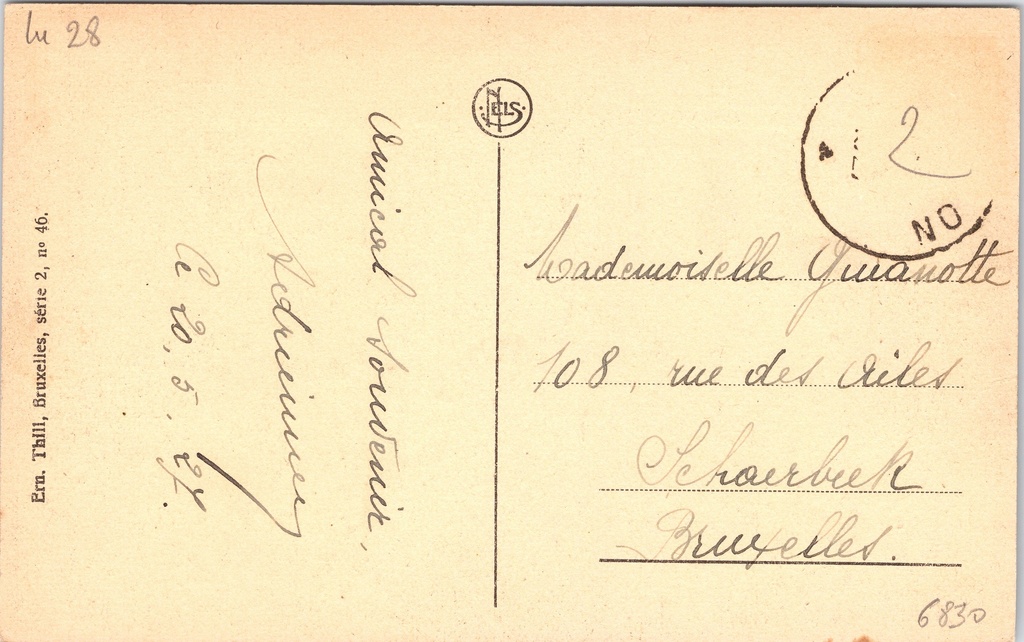 lu 28
Ern. Thill, Bruxelles, série 2, nº 46.
Amical Souvenir,
Le 20, 5, 27.
NELS
NO
2
Mademoiselle
108, rue des Ailes
Schaerbeek
Bruxelles.
6830